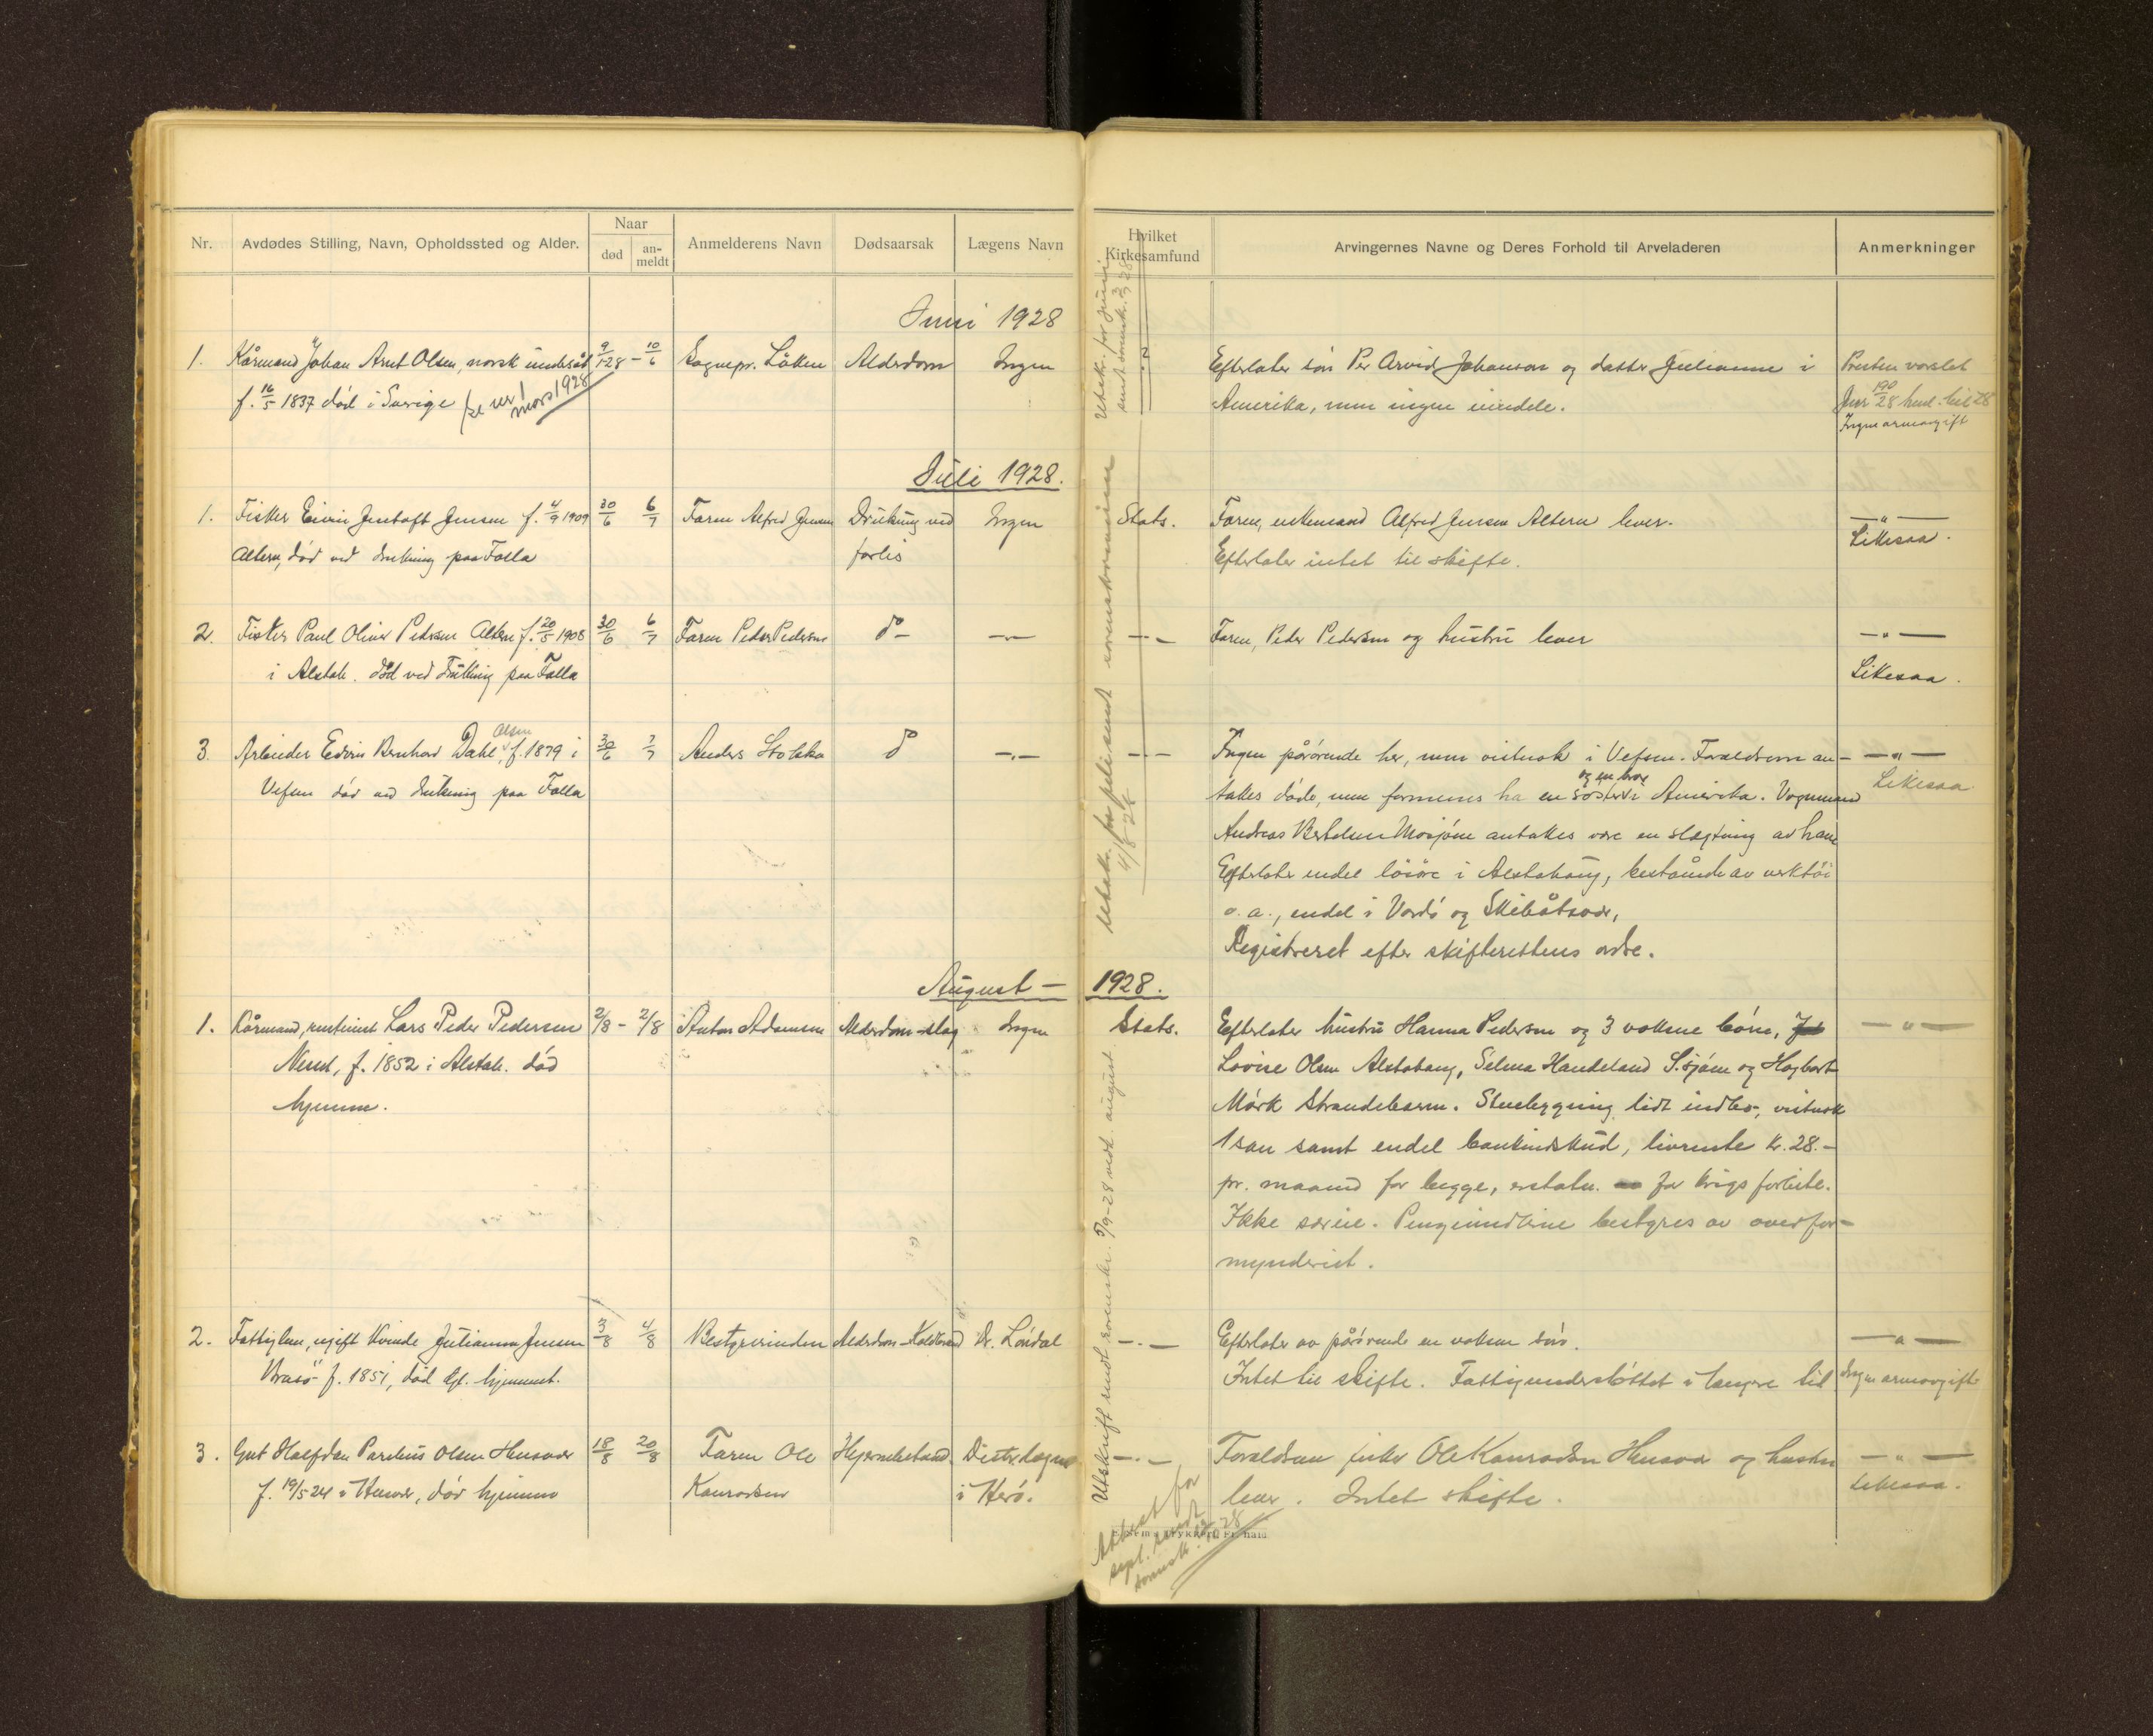 Nr.
Avdødes Stilling, Navn, Opholdssted og Alder.
Naar
død
an-
meldt
Anmelderens Navn
Dødsaarsak
Lægens Navn
Hvilket
Kirkesamfund
Arvingernes Navne og Deres Forhold til Arveladeren
Anmerkninger
Juni 1928
1. Kårmand Johan Arnt Olsen, norsk undersåt 9/1-28 - 10/6 Sognepr. Løkken Alderdom Ingen
f. 16/5 1837 død i Sverige
mors 1928
Efterlater søn Per Arvid Johanson og datter Julianne i
Amerika, men ingen eiendele.
Presten varslet
Jnr 190/28
Ingen arveavgift
Juli 1928.
1. Fisker Einin Jentoft Jensen f. 4/9 1909 30/6 6/7 Faren Alfred Jensen Drukning ved Ingen Stats.
Altern, død ved drukning paa Folla forlis
Faren, enkemand Alfred Jensen Altern lever.
Efterlater intet til skifte.
— " —
Likesaa.
2. Fisker Paul Oliver Pedersen Altern f. 20/5 1908 30/6 6/7 Faren Peder Pedersen do — —"— —"—
i Alstah. død ved drukning paa Folla
Faren, Peder Pedersen og hustru lever
— " —
Likesaa.
3. Arbeider Edvin Bernhard Dahl, f. 1879 i 30/6 7/7 Anders Stokka do —"— —"—
Olsen
Vefsen død ved drukning paa Folla
Ingen pårørende her, men vistnok i Vefsen. Forældrene an-
takes døde, men formenes ha en søster i Amerika. Vognmand
og en bror
Andreas Bertelsen Mosjøen antakes være en slægtning av ham
Efterlater endel løsøre i Alstahaug, bestående av verktøi
o.a., endel i Vardø og Skibåtsvær,
Registreret efter skifterettens ordre.
— " —
Likesaa
August — 1928.
1. Kårmand, rentenist Lars Peder Pedersen 2/8 - 2/8 Anton Adamsen Alderdom-slag Ingen Stats.
f. 1852 i Alstah. død
hjemme.
Efterlater hustru Hanna Pedersen og 3 voksne børn,
Lovise Olsen Alstahaug, Selma Handeland S.sjøen og Hagbart
Mørk Strandebarm. Stuebygning, lidt indbo, vistnok
1 sau samt endel bankindskud, livrente kr. 28.-
pr. maaned for begge, erstatn. for krigs forliste.
Ikke særeie. Pengemidlene bestyres av overfor-
mynderiet.
— " —
2. Fattiglem, ugift kvinde Julianna Jensen 3/8 4/8 Bestyrerinden Alderdom-Koldbrand Dr. Løndal —"—
Brasø f. 1851, død hjemmet.
Efterlater av pårørende en voksen søn.
Intet til skifte. Fattigunderstøttet i længre tid
— " —
Ingen arveavgift
3. Gut Halfdan Parelius Olsen Husvær 18/8 20/8 Faren Ole Hjernebetænd. Distr.lægen —"—
f. 19/5 24 i Husvær, død hjemme Konradsen i Herø.
Forældrene fisker Ole Konradsen Husvær og hustru
lever. Intet skifte.
— " —
Likesaa.
Utsk. for juni
sendt sorensk. 2/7 28
Utsk. for juli sendt sorenskriveren
4/8-28
Utskrift sendt sorenskr. 7/9-28 vedk. august
Attest for
sept. sendt
sorensk. 28